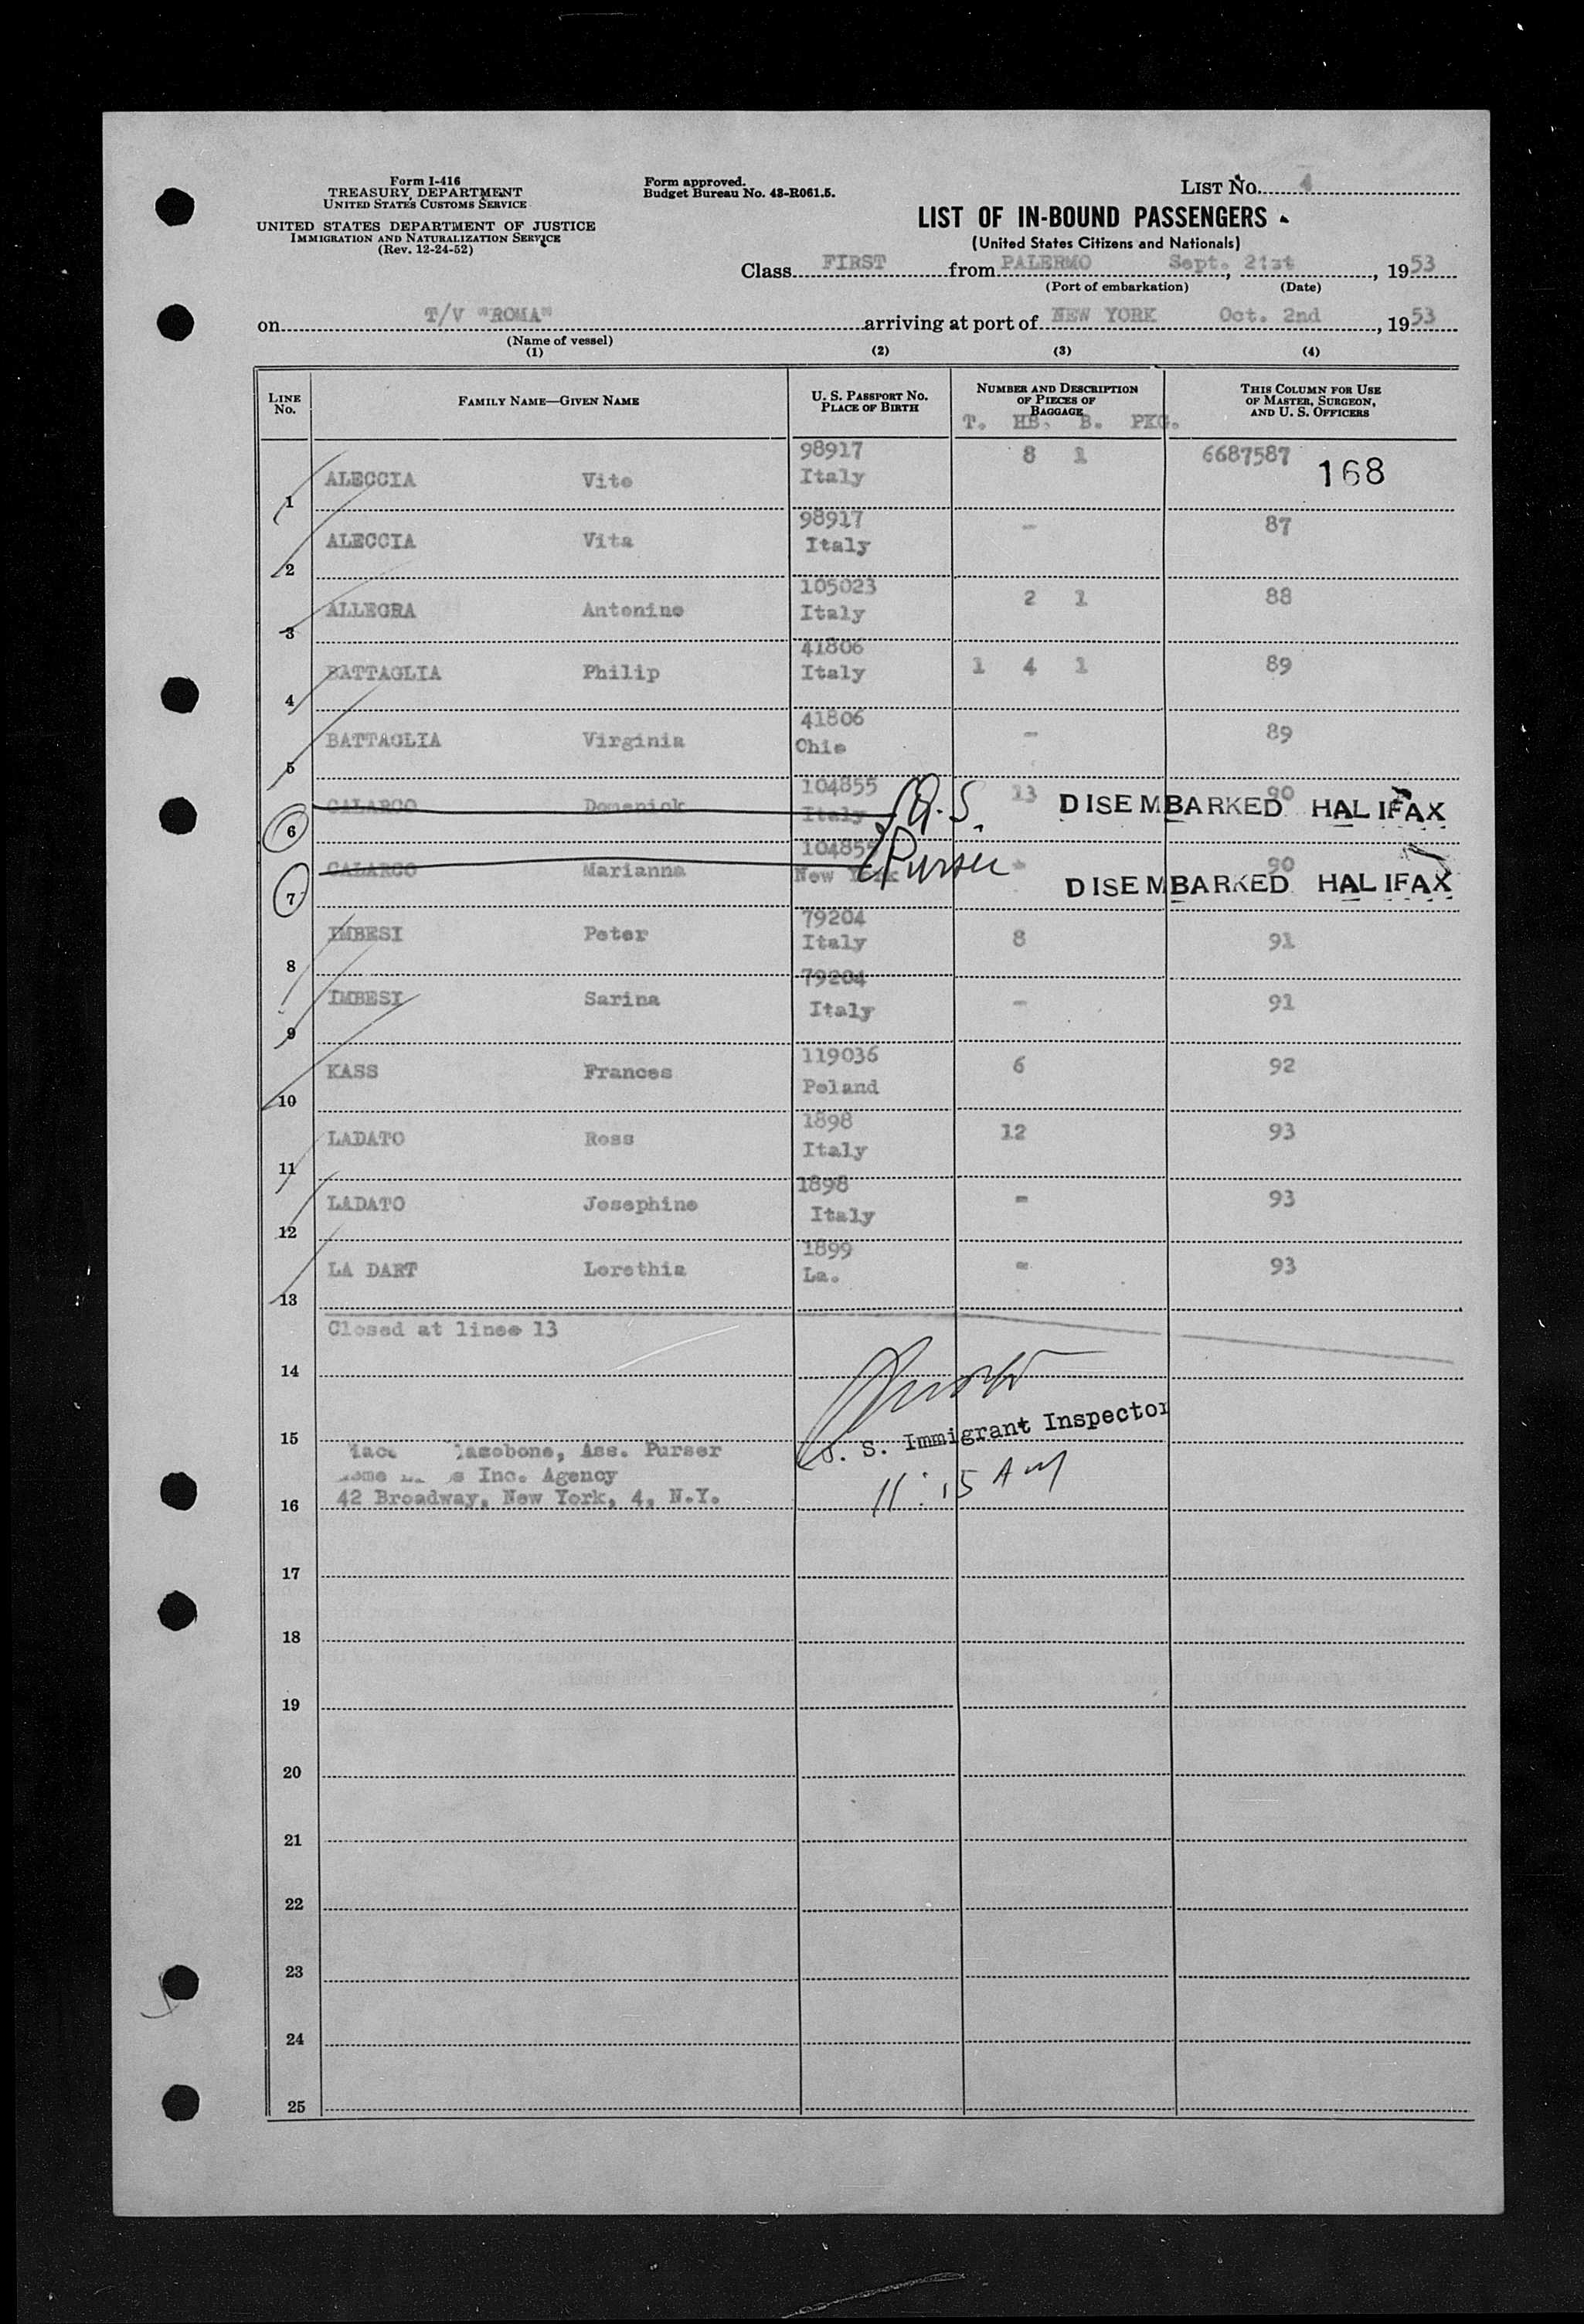 Form I-416
TREASURY DEPARTMENT
UNITED STATES CUSTOMS SERVICE
UNITED STATES DEPARTMENT OF JUSTICE
IMMIGRATION AND NATURALIZATION SERVICE
(Rev. 12-24-52)
Form approved.
Budget Bureau No. 43-R061.5.
LIST No. 4
LIST OF IN-BOUND PASSENGERS
(United States Citizens and Nationals)
Class FIRST from PALERMO Sept. 21st, 1953
(Port of embarkation) (Date)
on T/V "ROMA" arriving at port of NEW YORK Oct. 2nd, 1953
(Name of vessel)
(1) (2) (3) (4)
LINE No. FAMILY NAME—GIVEN NAME U. S. PASSPORT No. PLACE OF BIRTH NUMBER AND DESCRIPTION OF PIECES OF BAGGAGE THIS COLUMN FOR USE OF MASTER, SURGEON, AND U. S. OFFICERS
T. HB. B. PKG.
98917 8 1 6687587 168
1 ALECCIA Vito Italy
98917 - 87
2 ALECCIA Vita Italy
105023 2 1 88
3 ALLEGRA Antonino Italy
41806 1 4 1 89
4 BATTAGLIA Philip Italy
41806 - 89
5 BATTAGLIA Virginia Ohio
104855 13 90
6 CALARCO Domenick Italy DISEMBARKED HALIFAX
104855 - 90
7 CALARCO Marianna New York Purser DISEMBARKED HALIFAX
79204
8 IMBESI Peter Italy 8 91
79204
9 IMBESI Sarina Italy - 91
119036 6 92
10 KASS Frances Poland
1898 12 93
11 LADATO Ross Italy
1898 - 93
12 LADATO Josephine Italy
1899 - 93
13 LA DART Lorethia La.
Closed at linee 13
14
15
U. S. Immigrant Inspector
Ass. Purser
Inc. Agency
11:15 AM
16 42 Broadway, New York, 4, N.Y.
17
18
19
20
21
22
23
24
25